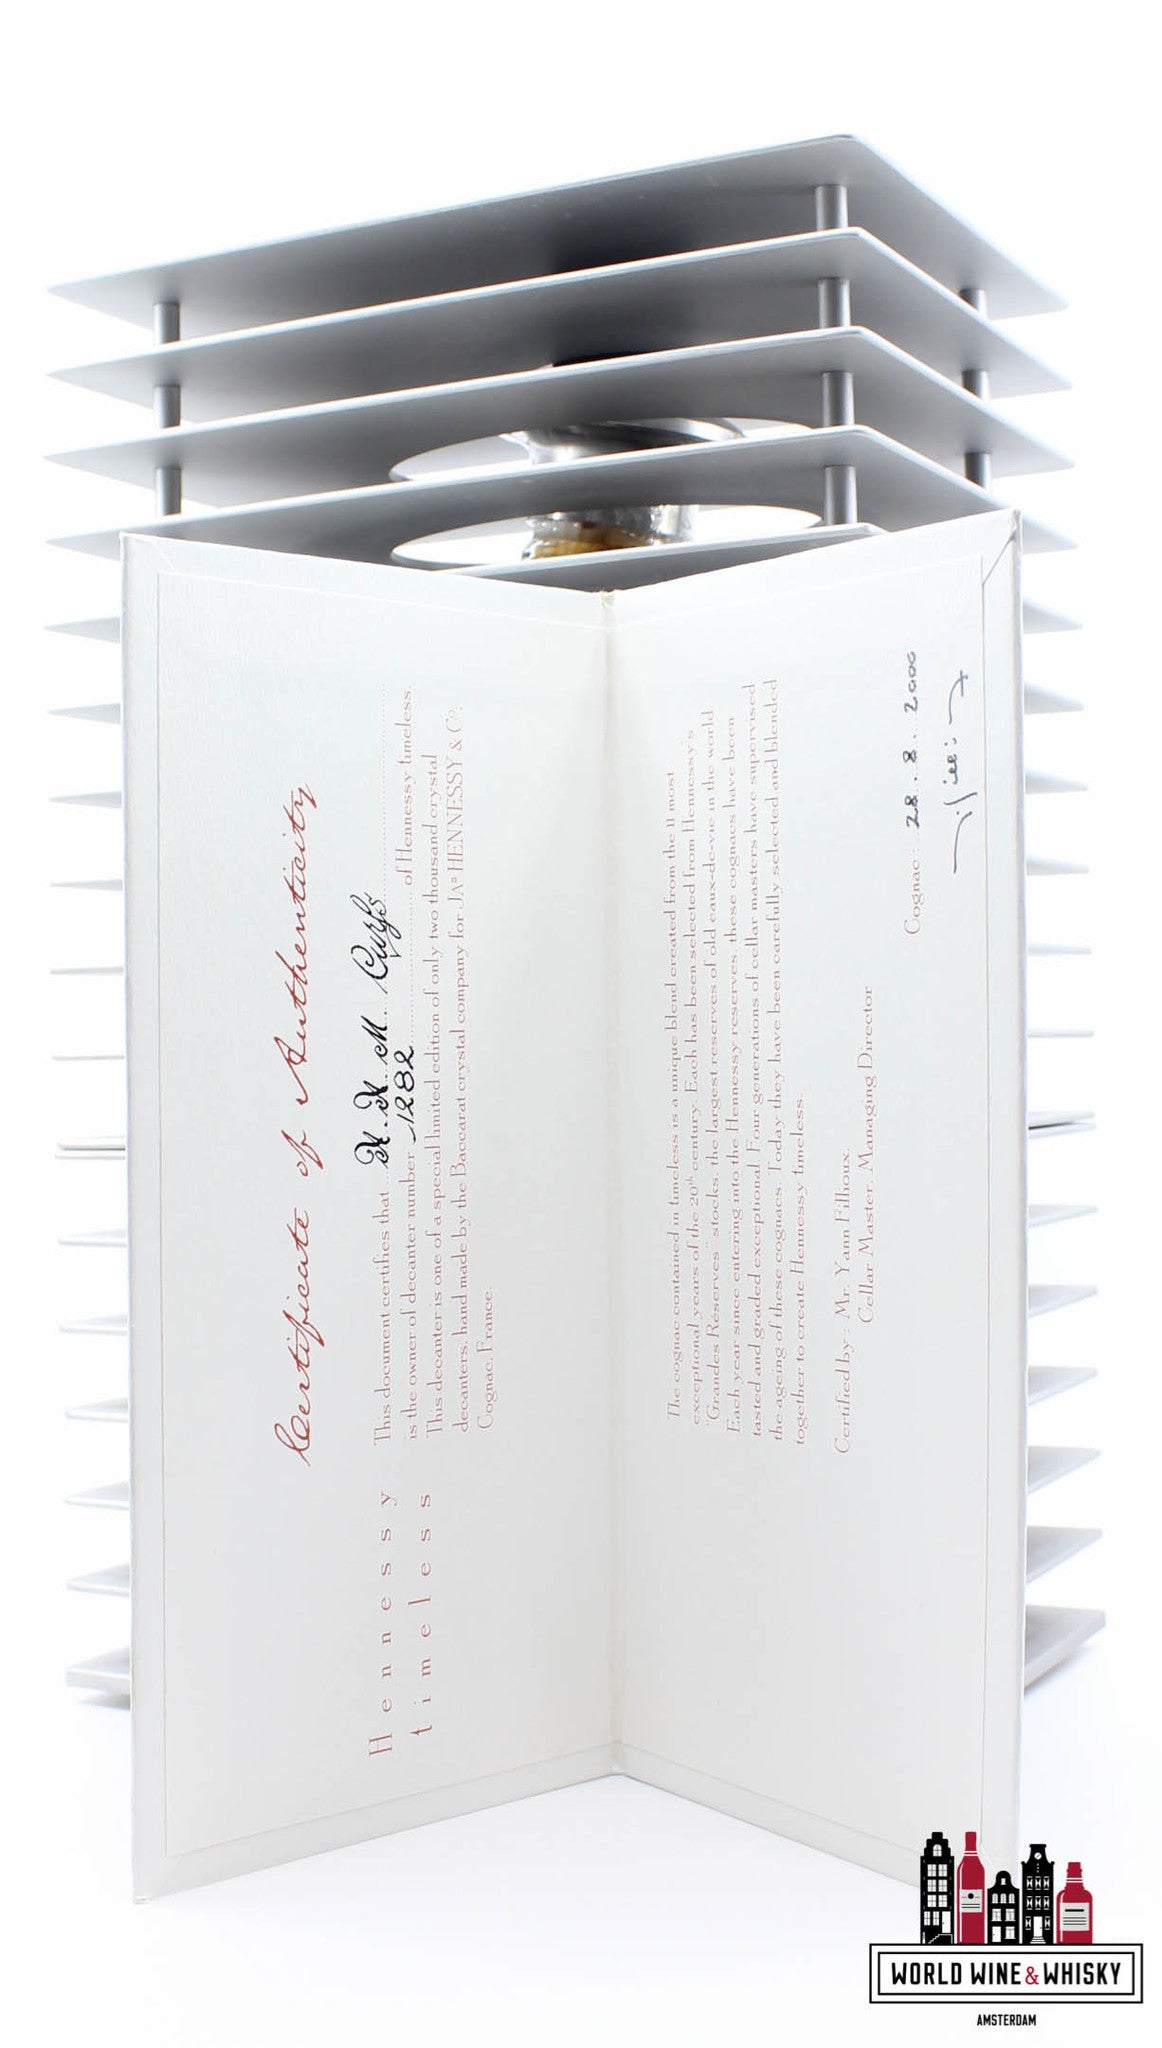 Certificate of Authenticity
Hennessy
timeless
This document certifies that
is the owner of decanter number 1282 of Hennessy timeless.
This decanter is one of a special limited edition of only two thousand crystal
decanters, hand made by the Baccarat crystal company for JAS HENNESSY & Co.
Cognac, France.
The cognac contained in timeless is a unique blend created from the 11 most
exceptional years of the 20th century. Each has been selected from Hennessy's
"Grandes Réserves" stocks, the largest reserves of old eaux-de-vie in the world
Each year since entering into the Hennessy reserves, these cognacs have been
tasted and graded exceptional. Four generations of cellar masters have supervised
the ageing of these cognacs. Today they have been carefully selected and blended
together to create Hennessy timeless.
Certified by : Mr. Yann Fillioux.
Cellar Master, Managing Director
Cognac : 28.8.2000
WORLD WINE & WHISKY
AMSTERDAM